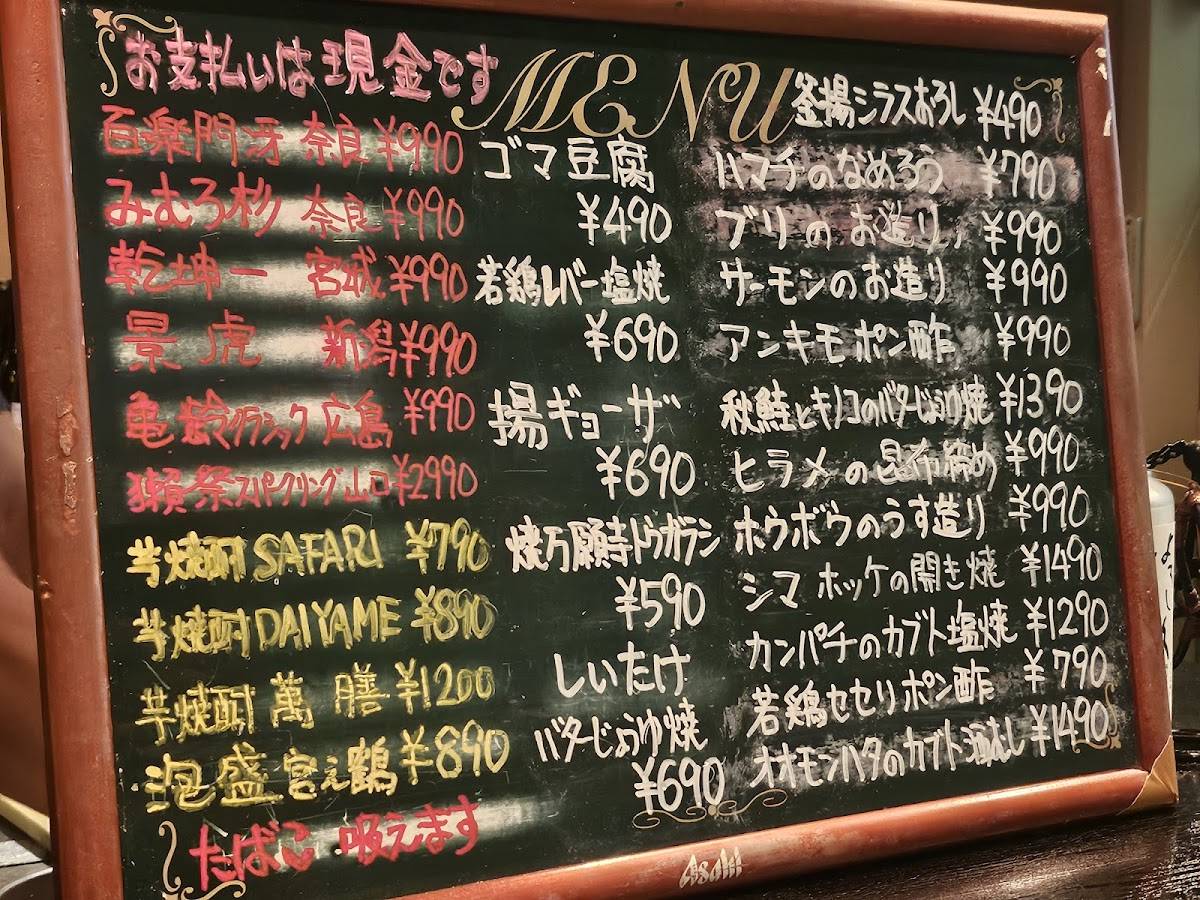 お支払いは現金です
MENU
百楽門 冴 奈良 ¥990
みむろ杉 奈良 ¥990
乾坤一 宮城 ¥990
景虎 新潟 ¥990
亀齢クラシック 広島 ¥990
獺祭スパークリング 山口 ¥2990
芋焼酎 SAFARI ¥790
芋焼酎 DAIYAME ¥890
芋焼酎 萬膳 ¥1200
泡盛 宮之鶴 ¥890
たばこ 吸えます
ゴマ豆腐
¥490
若鶏レバー塩焼
¥690
揚ギョーザ
¥690
焼万願寺トウガラシ
¥590
しいたけ
バターじょうゆ焼
¥690
釜揚シラスおろし ¥490
ハマチのなめろう ¥790
ブリのお造り ¥990
サーモンのお造り ¥990
アンキモポン酢 ¥990
秋鮭とキノコのバターじょうゆ焼 ¥1390
ヒラメの昆布締め ¥990
ホウボウのうす造り ¥990
シマホッケの開き焼 ¥1490
カンパチのカブト塩焼 ¥1290
若鶏セセリポン酢 ¥790
オオモンハタのカブト酒むし ¥1490
Asahi